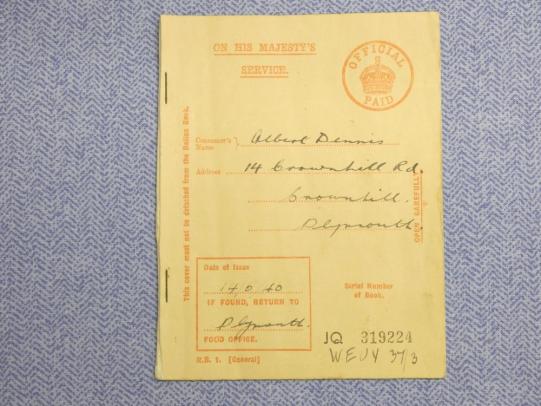 ON HIS MAJESTY'S
SERVICE.
OFFICIAL
PAID
This cover must not to be detached from the Ration Book.
Consumer's Name } Albert Dennis
Address 14 Crownhill Rd.
Crownhill.
Plymouth.
OPEN CAREFULLY
Date of Issue
40
IF FOUND, RETURN TO
Plymouth.
FOOD OFFICE.
R.B. 1. [General]
Serial Number
of Book.
JQ 319224
37/3